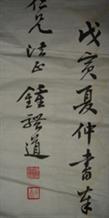 戊寅夏仲書奉
仁兄法正
鍾
道